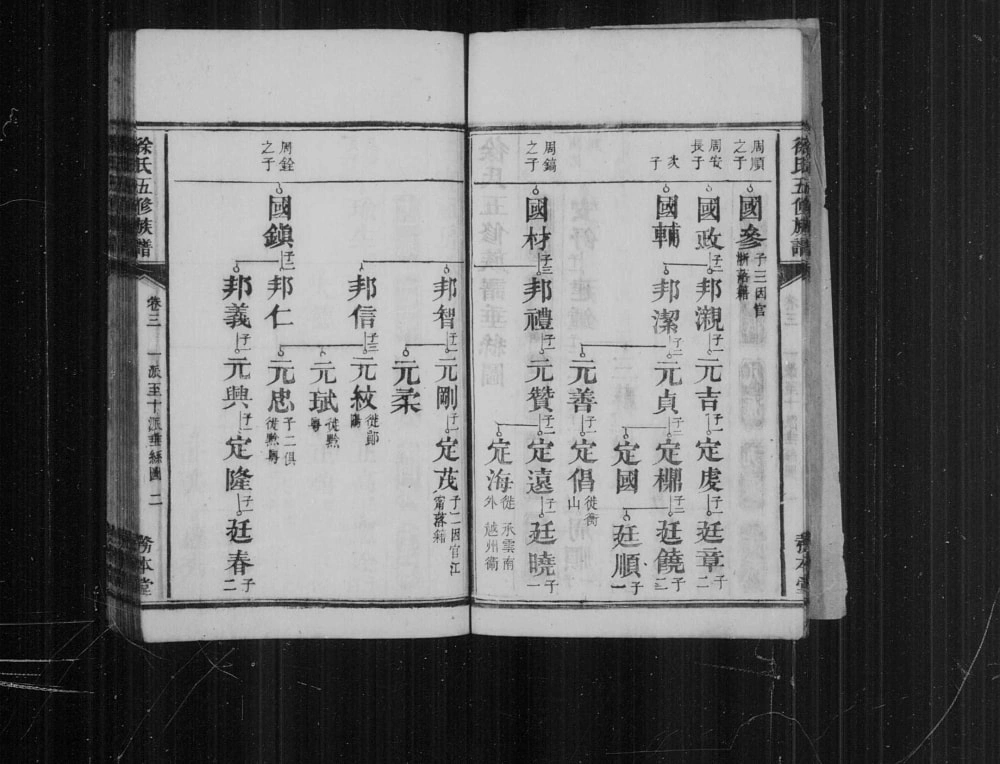 徐氏五修族譜
周順之子
國參
子三因官浙落籍
周安長子
國政
子一
邦覝
子一
元吉
子一
定虔
子一
廷章
子二
次子
國輔
邦潔
子一
元貞
子二
定棚
子一
廷饒
子二
定國
子一
廷順
子一
元善
子一
定倡
徙衡山
周鎬之子
國材
子三
邦禮
子一
元贊
子二
定遠
子一
廷曉
子一
定海
徙永雲南外越州衞
邦智
子二
元剛
子一
定茂
子二因官江甯落籍
元柔
邦信
子三
元紋
徙鄖陽
元斌
徙黔粵
元忠
子二俱徙黔粵
周銓之子
國鎮
子二
邦仁
邦義
子一
元興
子一
定隆
子一
廷春
子二
徐氏五修族譜
卷三
一派至十派垂絲圖
二
務本堂
務本堂